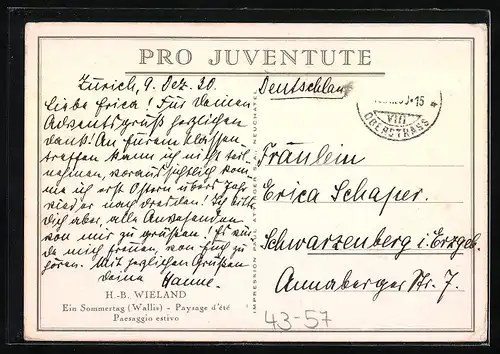 PRO JUVENTUTE
Zürich, 9. Dez. 30.
Liebe Erica! Für Deinen
Adventsgruß herzlichen
Dank! An Eurem Klassen
treffen kann ich nicht teil-
nehmen, voraussichtlich kom
me ich erst Ostern übers Jahr
wieder nach Dresden! Ich bitte
Dich aber, alle Anwesenden
von mir zu grüßen! Es wür
de mich freuen, von Euch zu
hören. Mit herzlichen Grüßen
Deine Hanne.
H.-B. WIELAND
Ein Sommertag (Wallis) - Paysage d'été
Paesaggio estivo
IMPRESSION PAUL ATTINGER S. A., NEUCHATEL
Deutschland
-15
VIII
OBERSTRASS
Fräulein
Erica Schaper.
Schwarzenberg i. Erzgeb.
Annaberger Str. 7.
43-57